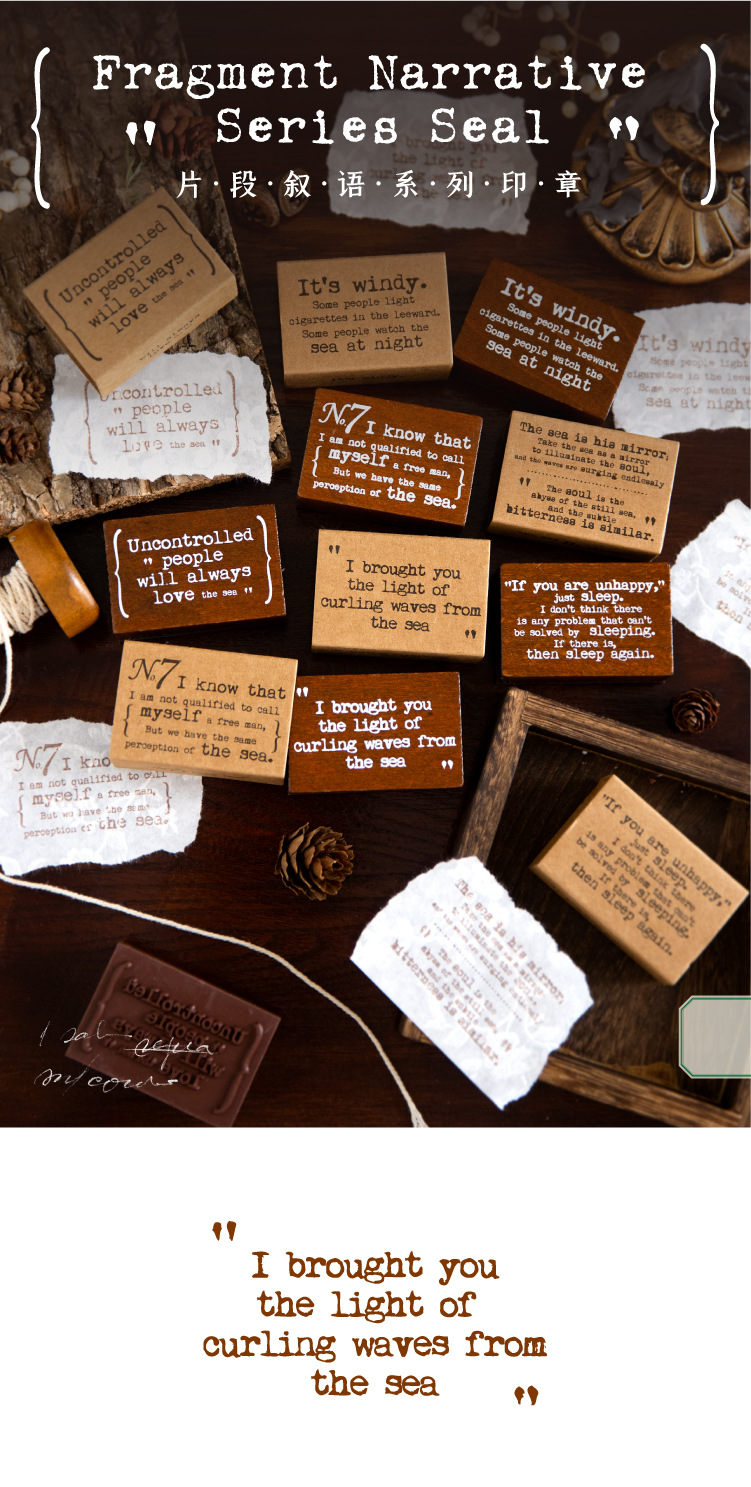 Fragment Narrative
" Series Seal "
片·段·叙·语·系·列·印·章
Uncontrolled
" people
will always
love the sea "
It's windy.
Some people light
cigarettes in the leeward.
Some people watch the
sea at night
It's windy.
Some people light
cigarettes in the leeward.
Some people watch the
sea at night
It's windy
Some people light
cigarettes in the lee
Some people watch t
sea at night
the light of
Uncontrolled
" people
will always
love the sea "
No.7 I know that
I am not qualified to call
myself a free man,
But we have the same
perception of the sea.
The sea is his mirror,
Take the sea as a mirror
to illuminate the soul,
and the waves are surging endlessly
" The soul is the
abyss of the still sea,
and the subtle "
bitterness is similar.
Uncontrolled
" people
will always
love the sea "
" I brought you
the light of
curling waves from
the sea "
"If you are unhappy,"
just sleep.
I don't think there
is any problem that can't
be solved by sleeping.
If there is,
then sleep again.
No.7 I know that
I am not qualified to call
myself a free man,
But we have the same
perception of the sea.
" I brought you
the light of
curling waves from
the sea "
No.7 I kno
I am not qualified to call
myself a free man,
But we have the same
perception of the sea.
"If you are unhappy,"
just sleep.
I don't think there
is any problem that can't
be solved by sleeping.
If there is,
then sleep again.
The sea is his mirror,
Take the sea as a mirror
to illuminate the soul,
and the waves are surging endlessly
" The soul is the
abyss of the still sea,
and the subtle "
bitterness is similar.
" I brought you
the light of
curling waves from
the sea "